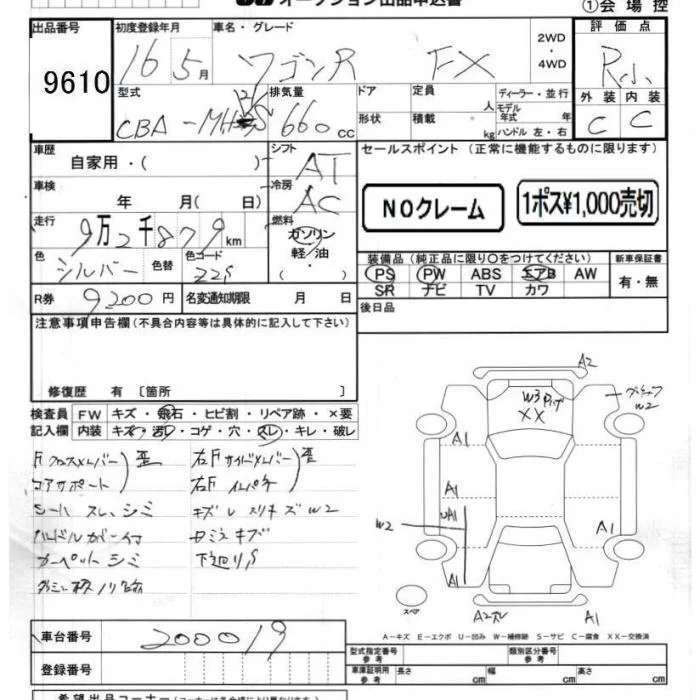 オークション出品申込書
①会場控
出品番号 初度登録年月 車名・グレード 評価点
9610 16年 5月 ワゴンR FX 2WD・4WD R小
型式 排気量 ドア 定員 人 ディーラー・並行 外装 内装
CBA-MH 660 CC 形状 積載 kg モデル年式 年 ハンドル 左・右 C C
車歴 シフト セールスポイント (正常に機能するものに限ります)
自家用・( ) AT
車検 冷房
年 月( 日) AC NOクレーム 1ポス¥1,000売切
走行 燃料
9万2千879km ガソリン
色 色替 色コード 軽油 装備品 (純正品に限り〇をつけてください) 新車保証書
シルバー Z2S ・( ) PS PW ABS エアB AW 有・無
SR ナビ TV カワ
R券 9200円 名変通知期限 月 日 後日品
注意事項申告欄 (不具合内容等は具体的に記入して下さい)
修復歴 有 [箇所 ]
検査員 FW キズ・飛石・ヒビ割・リペア跡・×要
記入欄 内装 キズ・汚レ・コゲ・穴・スレ・キレ・破レ
Fクロスメンバー 歪 右Fサイドメンバー 歪
コアサポート 右Fインパネ
シート スレ、シミ キズ W2
ハンドルカバー付
カーペット シミ 下廻りS
A2
W3 XX
W2
A1
A1
UA1
W2
A1
A1
スペア
A2
A1
A-キズ E-エクボ U-凹み W-補修跡 S-サビ C-腐食 XX-交換済
車台番号 200019 型式指定番号 参考 類別区分番号 参考
登録番号 車庫証明用 参考 長さ cm 幅 cm 高さ cm
希望出品コーナー